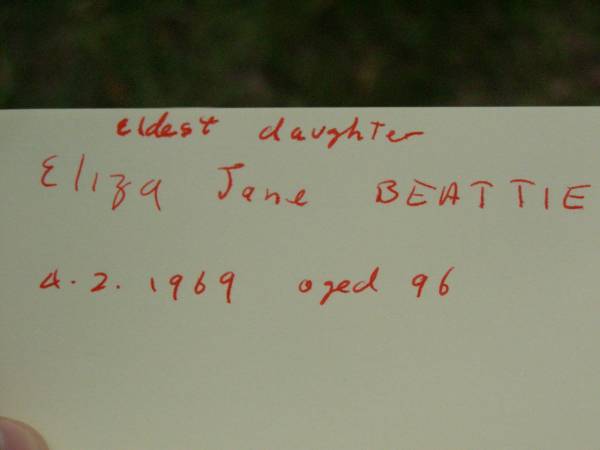 eldest daughter
Eliza Jane BEATTIE
4.2.1969 aged 96